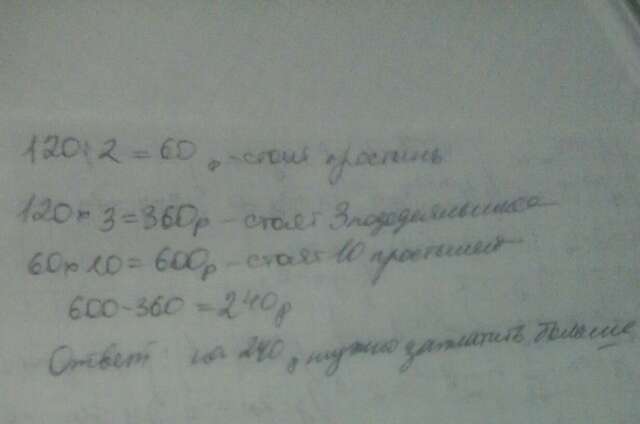 120:2=60 р - стоит простынь
120×3=360р - стоят 3 пододеяльника
60×10=600р - стоят 10 простыней
600-360=240р
Ответ на 240 р нужно заплатить больше